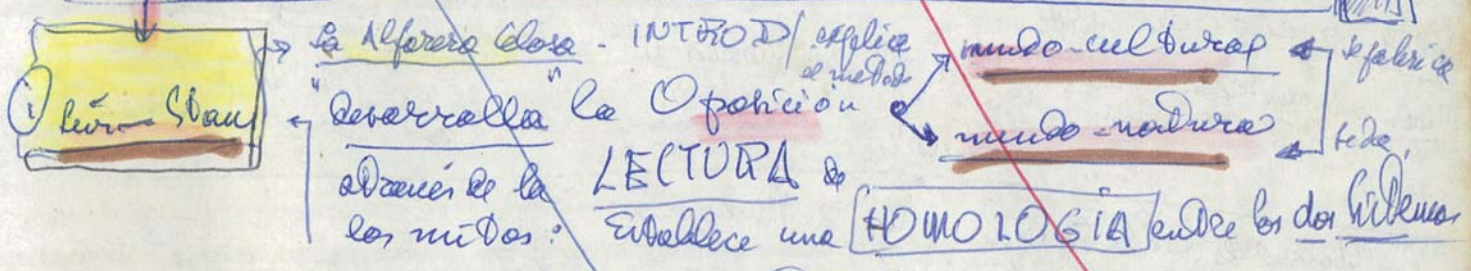 La Alfarera Celosa - INTROD/ explica el metodo
① Lévi-Strau
"desarrolla" la Oposición
mundo-cultural
mundo-natura
se fabrica
através de la LECTURA de
los mitos: Establece una HOMOLOGÍA entre los dos Sistemas